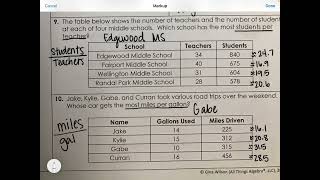 Markup
9. The table below shows the number of teachers and the number of students
at each of four middle schools. Which school has the most students per
teacher? Edgewood MS
Students
Teachers
School Teachers Students
Edgewood Middle School 34 840 ≈24.7
Fairport Middle School 40 675 ≈16.9
Wellington Middle School 31 604 ≈19.5
Randal Park Middle School 28 578 ≈20.6
10. Jake, Kylie, Gabe, and Curran took various road trips over the weekend.
Whose car gets the most miles per gallon? Gabe
miles
gal
Name Gallons Used Miles Driven
Jake 14 225 ≈16.1
Kylie 15 312 ≈20.8
Gabe 10 315 31.5
Curran 16 456 28.5
© Gina Wilson (All Things Algebra®, LLC), 2